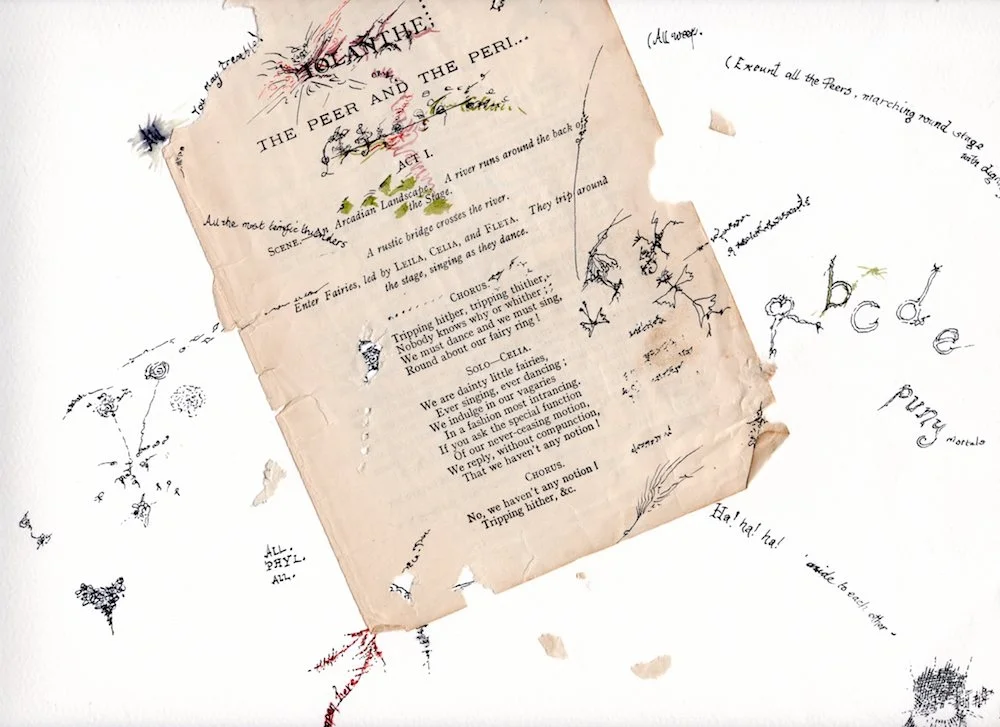 You may tremble!
IOLANTHE;
OR,
THE PEER AND THE PERI...
ACT I.
SCENE.—An Arcadian Landscape. A river runs around the back of
the Stage. A rustic bridge crosses the river.
Enter Fairies, led by LEILA, CELIA, and FLETA. They trip around
the stage, singing as they dance.
CHORUS.
Tripping hither, tripping thither,
Nobody knows why or whither;
We must dance and we must sing,
Round about our fairy ring!
SOLO—CELIA.
We are dainty little fairies,
Ever singing, ever dancing;
We indulge in our vagaries
In a fashion most intrancing.
If you ask the special function
Of our never-ceasing motion,
We reply, without compunction,
That we haven't any notion!
CHORUS.
No, we haven't any notion!
Tripping hither, &c.
All the most terrific thunders
ALL.
PHYL.
ALL.
here
(All weep.
(Exeunt all the Peers, marching round stage
with
b c d e
puny
mortals
Ha! ha! ha!
aside to each other